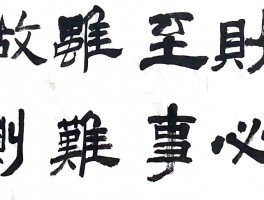 財必
至事
雖難
做則